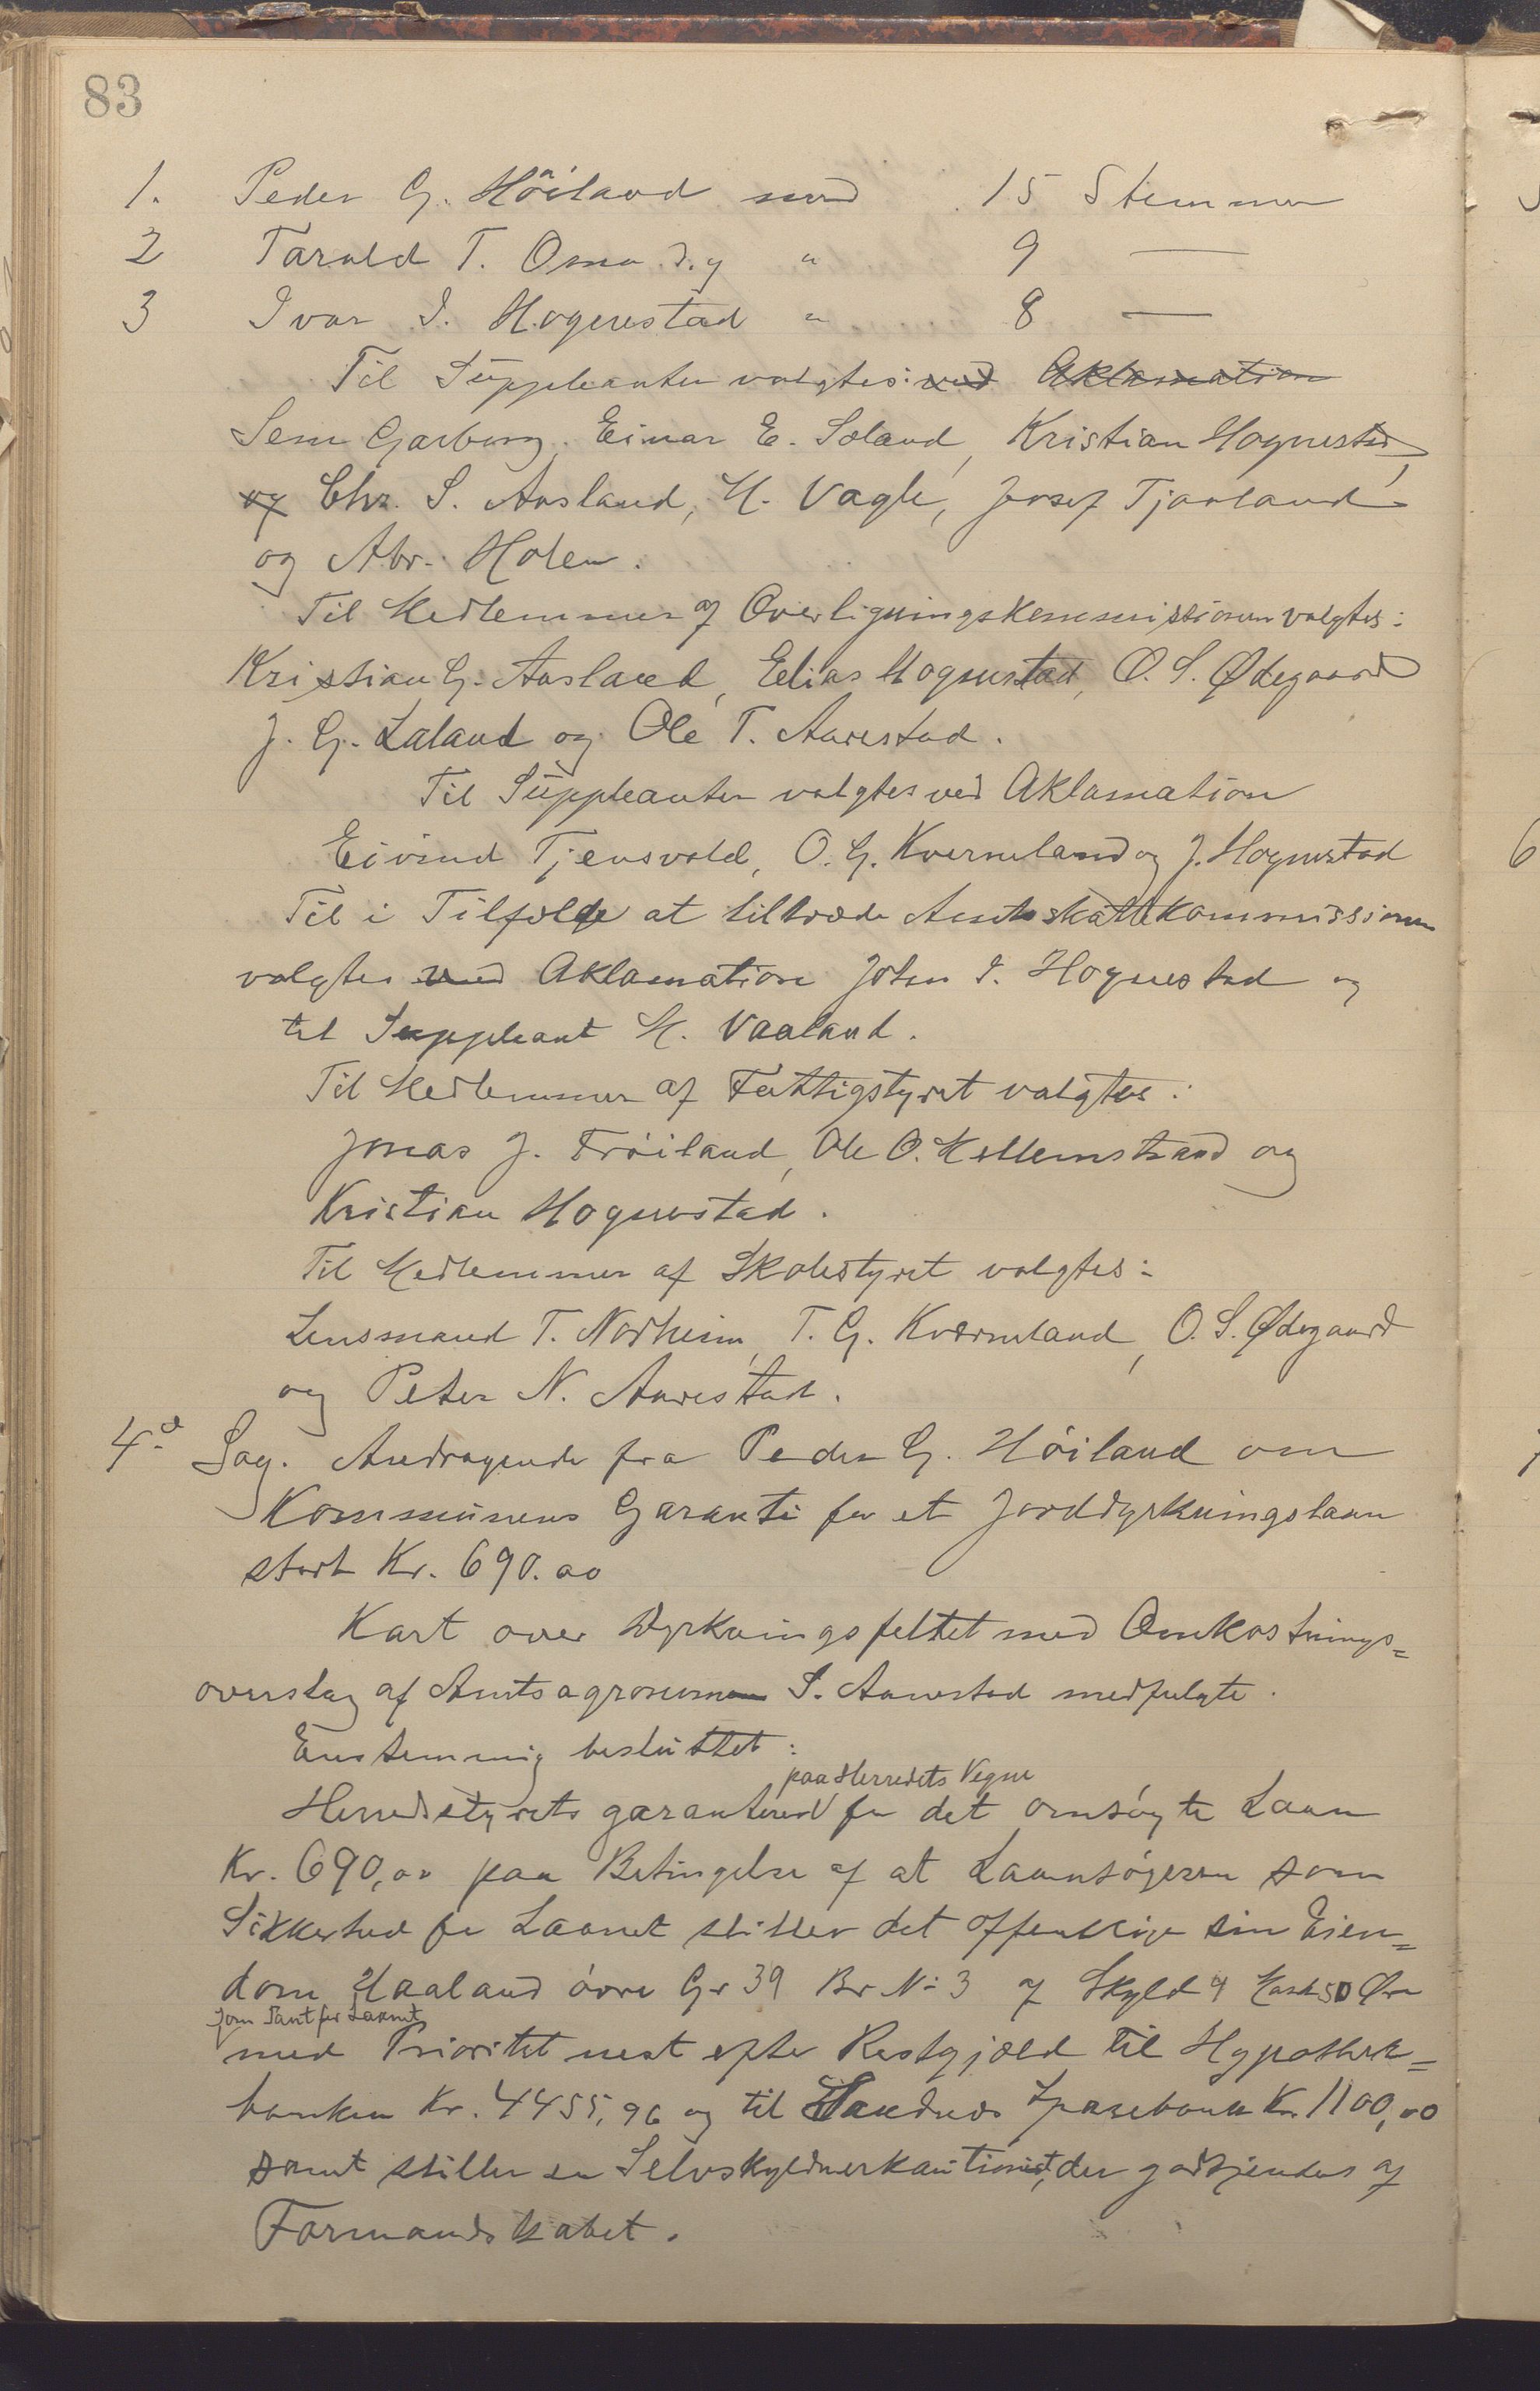 83
1. Peder G. Höiland med 15 Stemmer
2 Tarald T. Osmo d.y " 9 —
3 Ivar I. Hognestad " 8 —
Til Suppleanter valgtes: ved Aklamation
Sem Garborg, Einar E. Soland, Kristian Hognestad,
og Chr. S. Aasland, M. Vagle, Josef Tjaaland
og Abr. Holen.
Til Medlemmer af Overligningskommissionen valgtes:
Kristian G. Aasland, Elias Hognestad, O. S. Ødegaard
J. G. Laland og Ole T. Aarestad.
Til Suppleanter valgtes ved Aklamation
Eivind Tjensvold, O. G. Kverneland og J. Hognestad
Til i Tilfælde at tiltræde Amtsskattekommissionen
valgtes ved Aklamation John I. Hognestad og
til Suppleant M. Vaaland.
Til Medlemmer af Fattigstyret valgtes:
Jonas J. Fröiland, Ole O. Mellemstrand og
Kristian Hognestad.
Til Medlemmer af Skolestyret valgtes:
Lensmand T. Norheim, T. G. Kverneland, O. S. Ødegaard
og Peter N. Aarestad.
4.d Sag. Andragende fra Peder G. Höiland om
Kommunens Garanti for et Jorddyrkningslaan
stort Kr. 690.00
Kart over Dyrkningsfeltet med Omkostnings=
overslag af Amtsagronom S. Aarestad medfulgte.
Enstemmig besluttet:
paa Herredets Vegne
Herredstyrets garanterer for det omsøgte Laan
Kr. 690,00 paa Betingelse af at Laansøgeren som
Sikkerhed for Laanet stiller det offentlige sin Eien=
dom Haaland övre Gr 39 Br. No 3 af Skyld 4 Mark 50 Øre
som Pant for Laanet
med Prioritet nest efter Restgjæld til Hypothek=
banken Kr. 4455,96 og til Sandnes Sparebank Kr. 1100,00
samt stiller en Selvskyldnerkautionist, der godkjendes af
Formandskabet.